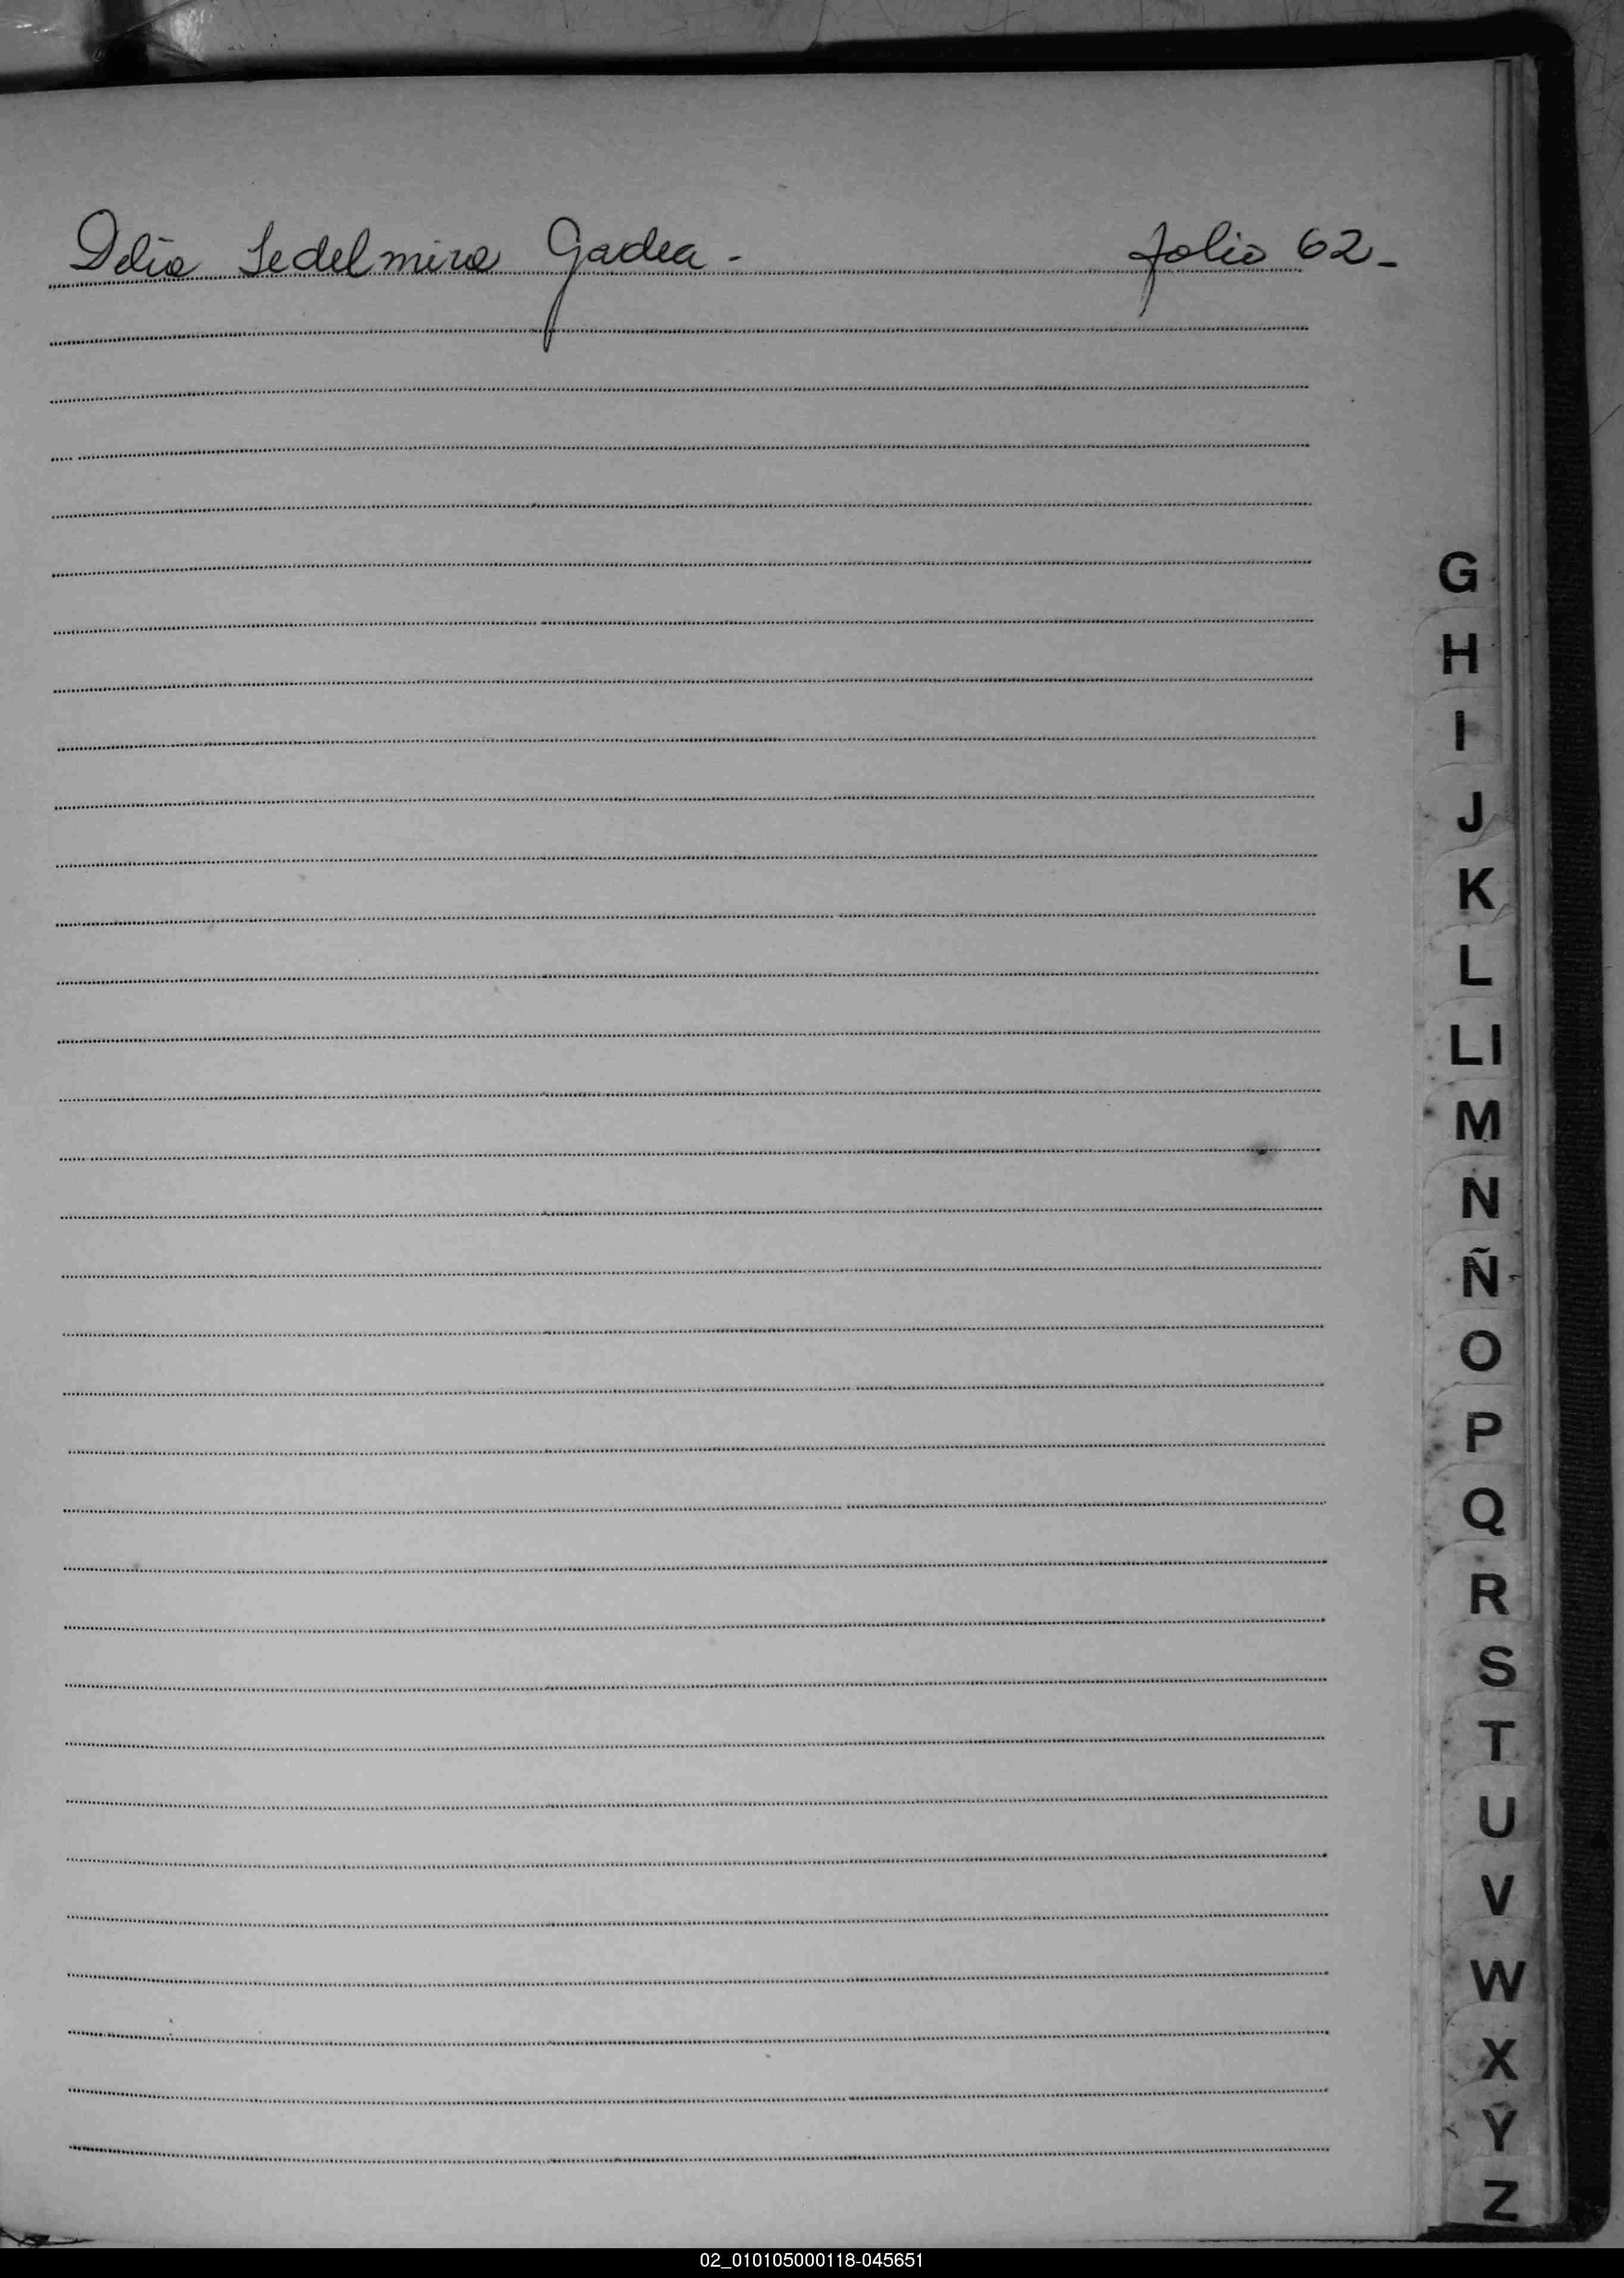 Delia Sedelmira Gadea - folio 62-
G
H
I
J
K
L
Ll
M
N
Ñ
O
P
Q
R
S
T
U
V
W
X
Y
Z
02_010105000118-045651